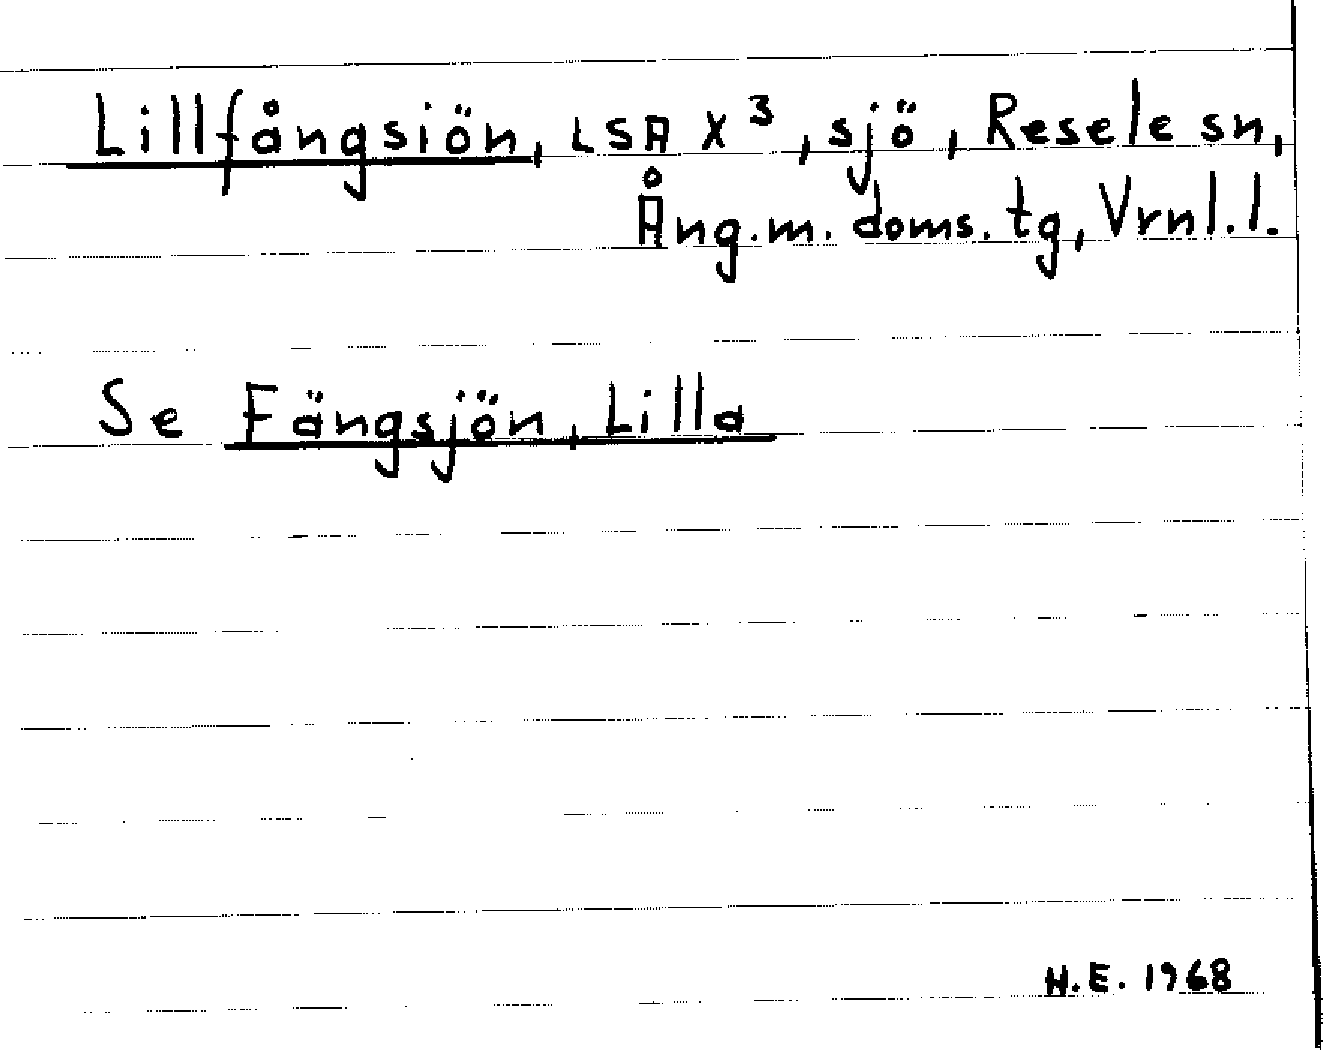 Lillfångsiön, LSA X³, sjö, Resele sn,
Ång.m. doms. tg, Vrnl.l.
Se Fängsjön, Lilla
H.E. 1968